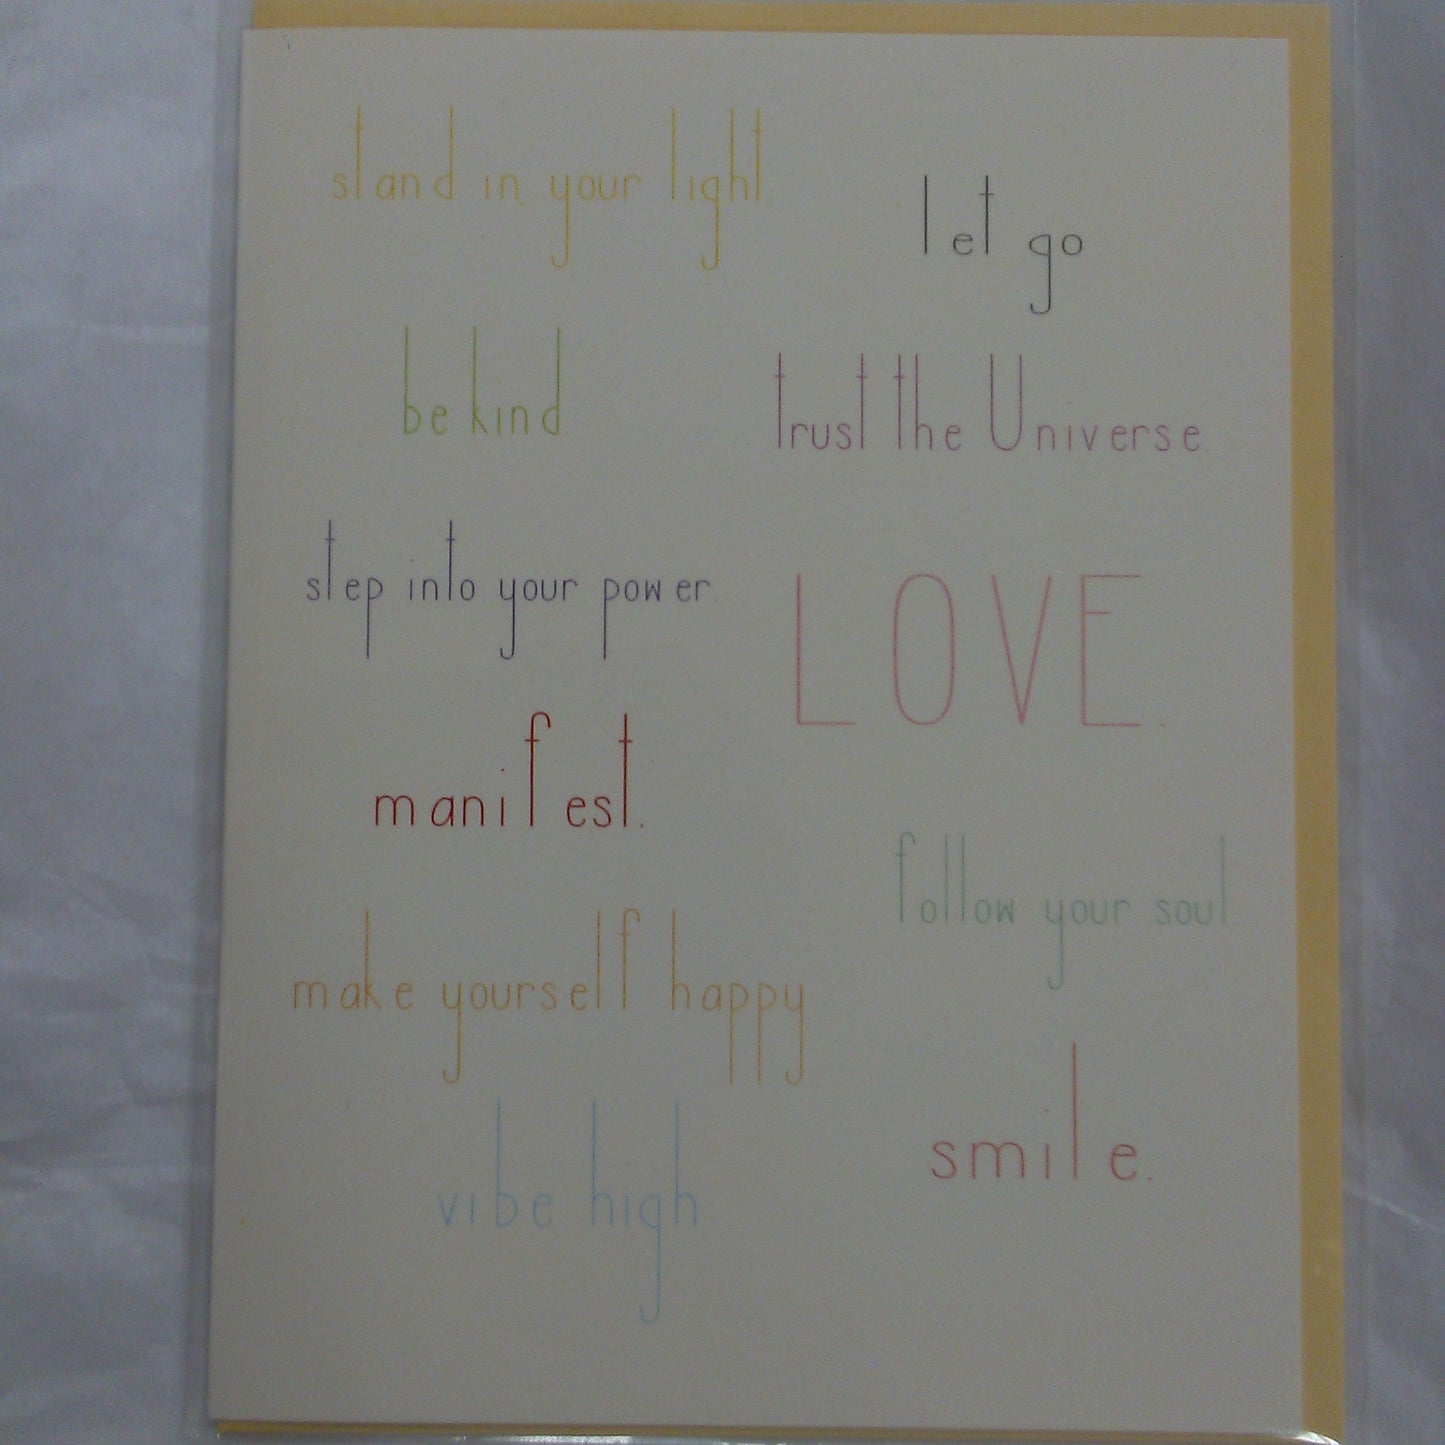 stand in your light.
let go
be kind
trust the Universe.
step into your power.
LOVE.
manifest.
follow your soul
make yourself happy
smile.
vibe high